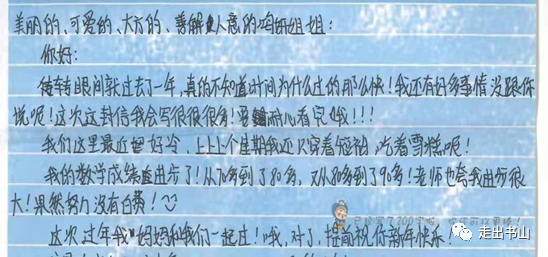 美丽的、可爱的、大方的、善解人意的鸣妍姐姐：
你好：
转眼间就过去了一年，真的不知道时间为什么过的那么快！我还有好多事情没跟你
说呢！这次这封信我会写很很很多！要耐心看完哦！！！
我们这里最近好冷，上上上个星期我还穿着短袖，吃着雪糕呢！
我的数学成绩进步了！从70多到了80多，又从80多到了90多！老师也夸我进步很
大！果然努力没有白费！
已经写了200字啦，
这次过年我妈妈和我们一起过！哦，对了，提前祝你新年快乐！
走出书山